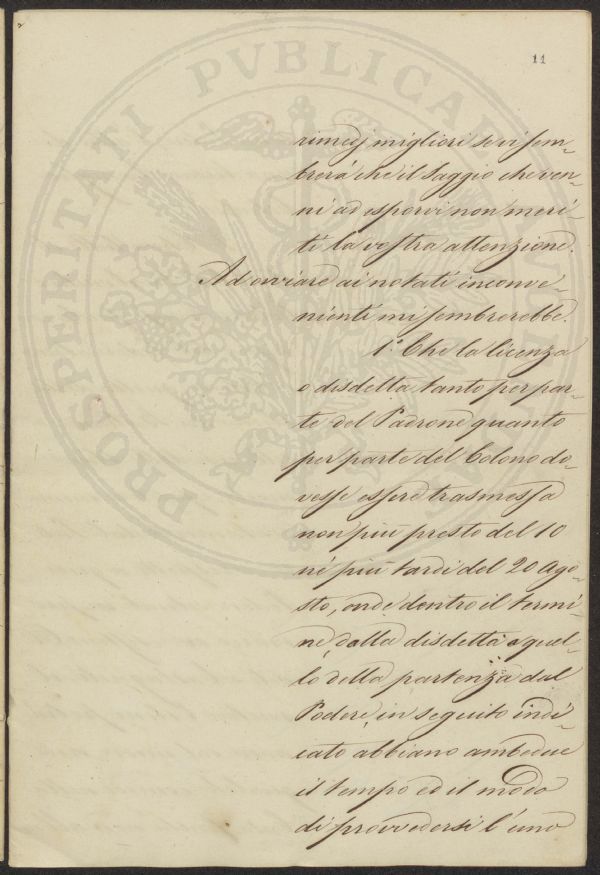 11
rimedj migliori se vi sem-
brerà che il Saggio che ven-
ni ad esporvi non meri-
ti la vostra attenzione.
Ad ovviare ai notati inconve-
nienti mi sembrerebbe.
1° Che la licenza
o disdetta tanto per par-
te del Padrone quanto
per parte del Colono do-
vesse essere trasmessa
non più presto del 10
nè più tardi del 20 Ago-
sto, onde dentro il termi-
ne dalla disdetta a quel-
lo della partenza dal
Podere, in seguito indi-
cato abbiano ambedue
il tempo ed il modo
di provvedersi l'uno
PROSPERITATI PVBLICAE